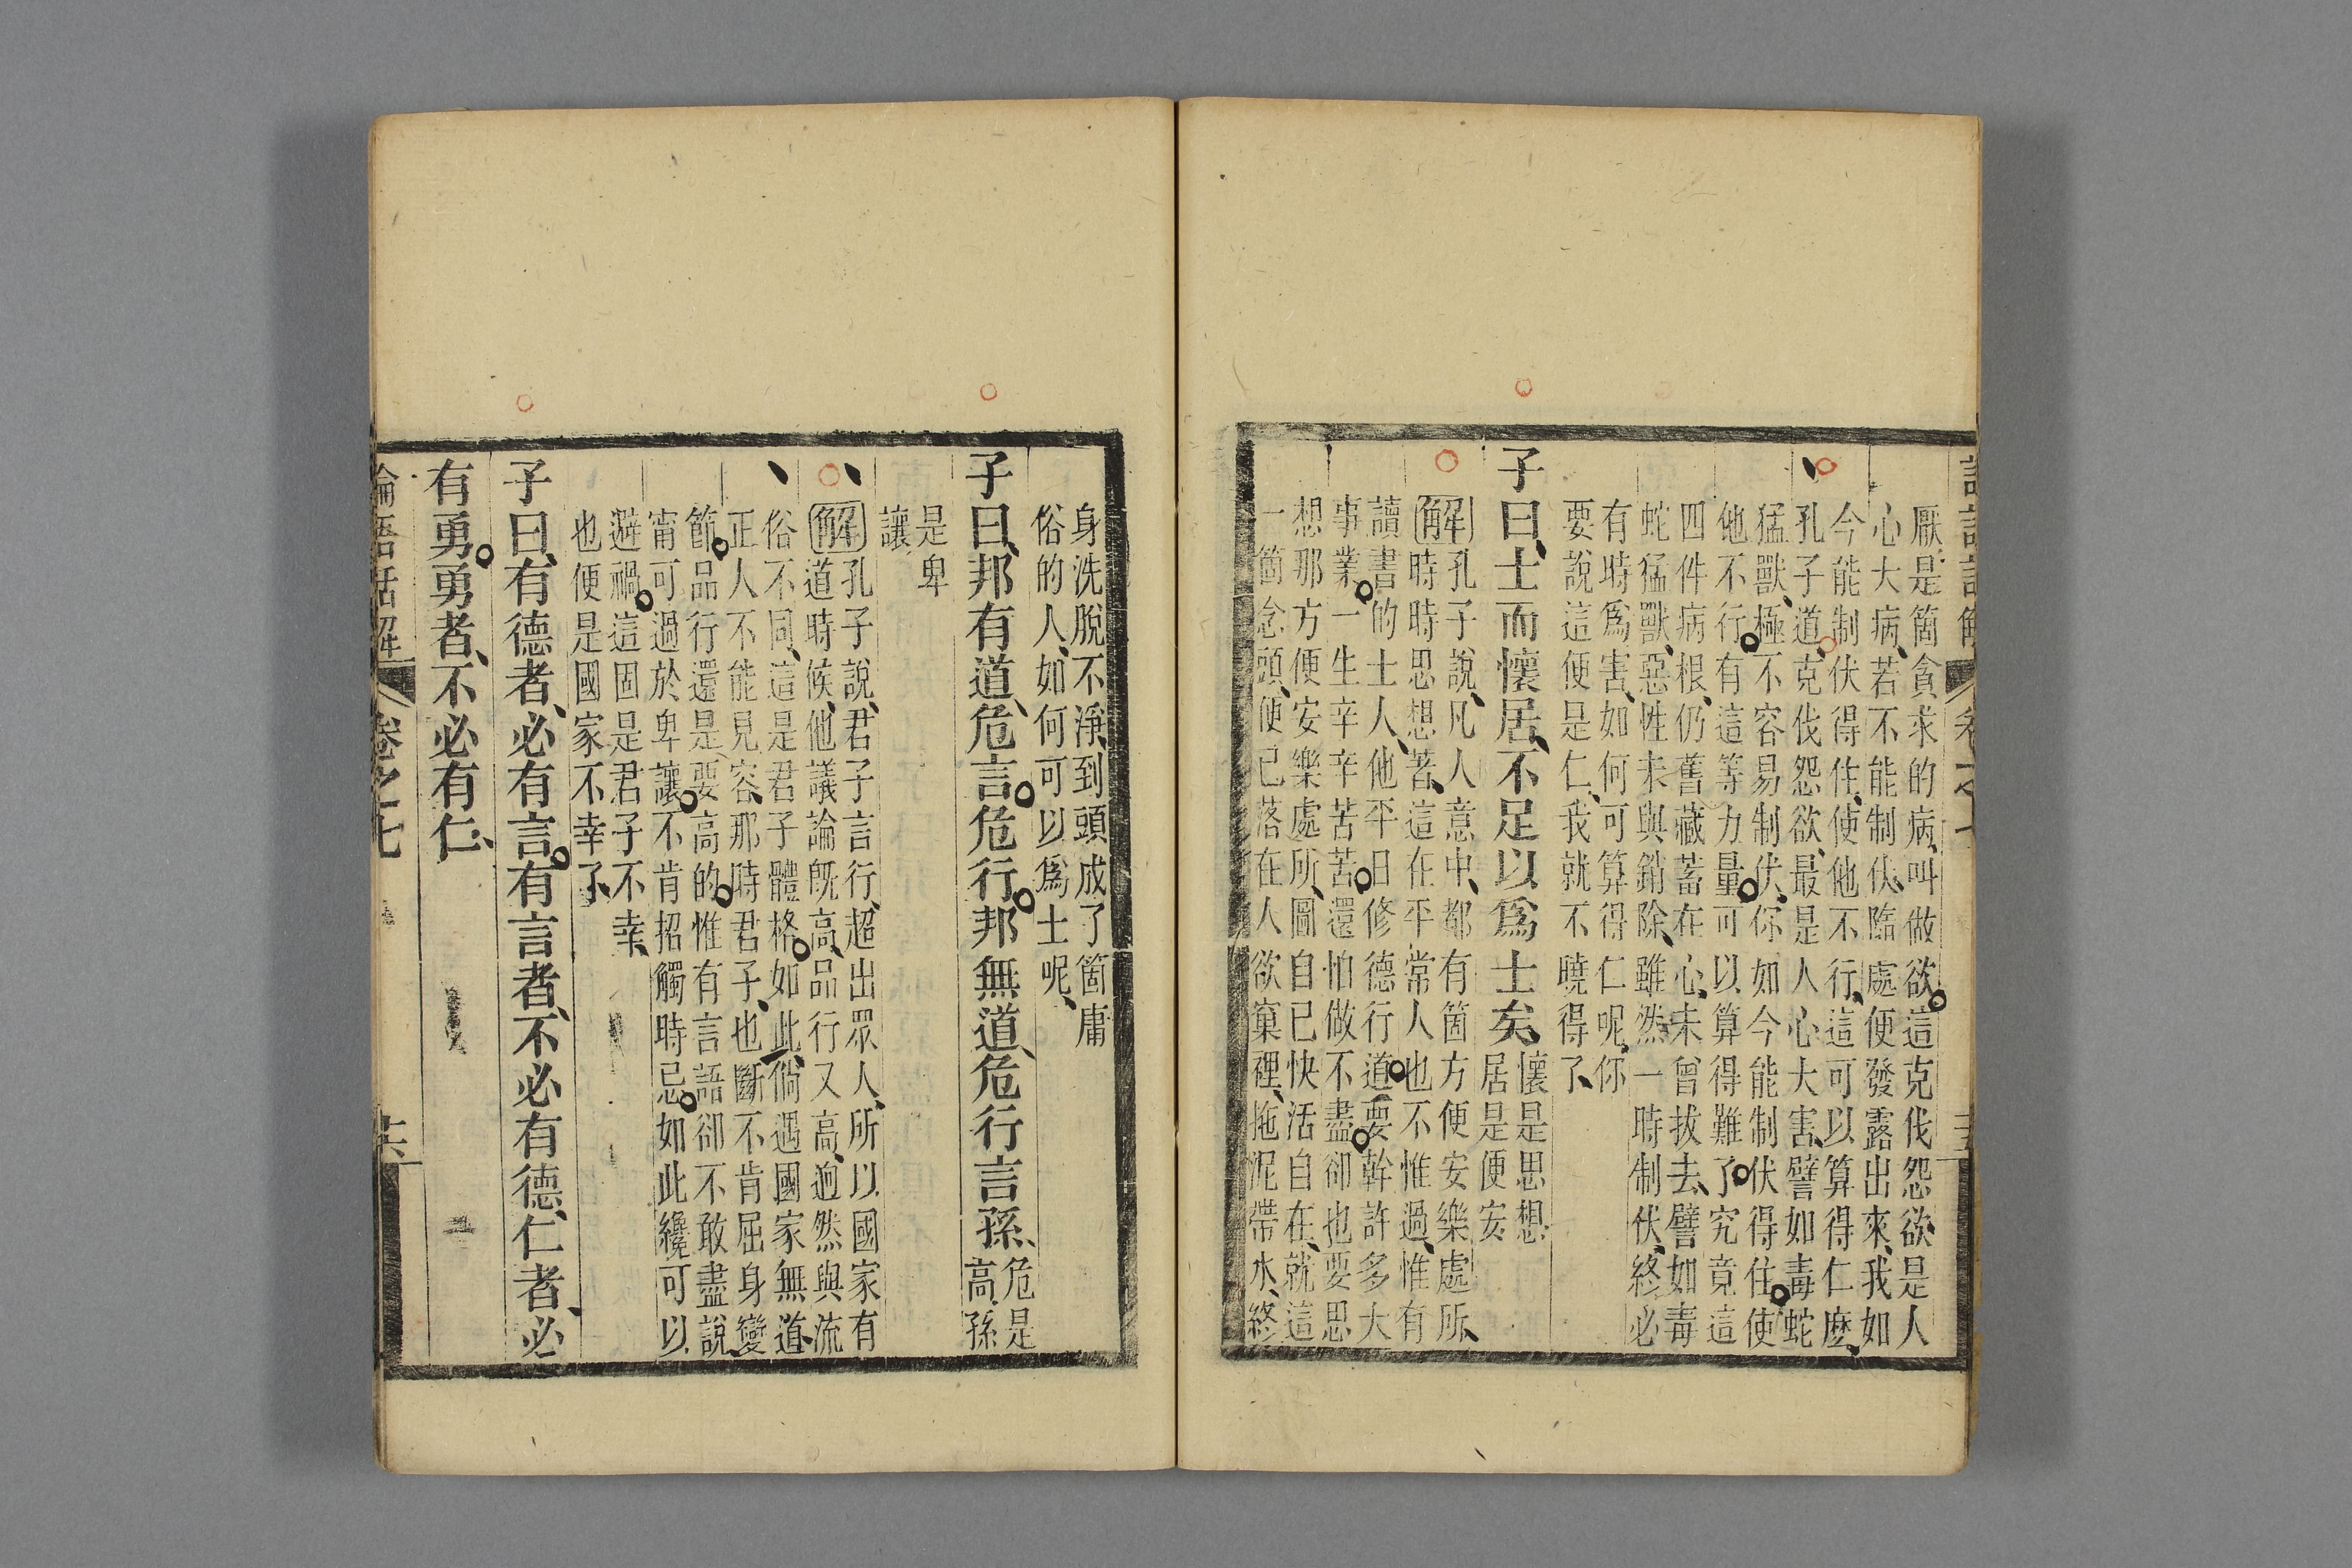 厭是箇貪求的病、叫做欲。這克伐怨欲、是人
心大病、若不能制伏、臨處便發露出來、我如
今能制伏得住、使他不行、這可以算得仁麽、
孔子道、克伐怨欲、最是人心大害、譬如毒蛇
猛獸、極不容易制伏、你如今能制伏得住。使
他不行。有這等力量。可以算得難了。究竟這
四件病根、仍舊藏蓄在心、未曾拔去、譬如毒
蛇猛獸、惡性未與銷除、雖然一時制伏、終必
有時爲害、如何可算得仁呢、你
要說這便是仁、我就不曉得了、
子曰、士而懷居、不足以爲士矣、
懷是思想
居是便安
解孔子說、凡人意中、都有箇方便安樂處所、
時時思想著、這在平常人也不惟過、惟有
讀書的士人、他平日修德行道。要幹許多大
事業。一生辛辛苦苦。還怕做不盡。卻也要思
想那方便安樂處所、圖自已快活自在、就這
一箇念頭、便已落在人欲窠裡、拖泥帶水、終
身洗脫不淨、到頭成了箇庸
俗的人、如何可以爲士呢、
子曰、邦有道、危言。危行。邦無道、危行言孫、
危是
高、孫
是卑
讓
解孔子說、君子言行、超出眾人、所以國家有
道時候、他議論旣高、品行又高、迥然與流
俗不同、這是君子體格。如此、倘遇國家無道、
正人不能見容、那時君子、也斷不肯屈身變
節。品行還是要高的。惟有言語卻不敢盡說、
甯可過於卑讓。不肯招觸時忌。如此纔可以
避禍。這固是君子不幸、
也便是國家不幸了、
子曰、有德者、必有言。有言者、不必有德、仁者、必
有勇。勇者、不必有仁、
論語話解
卷之七